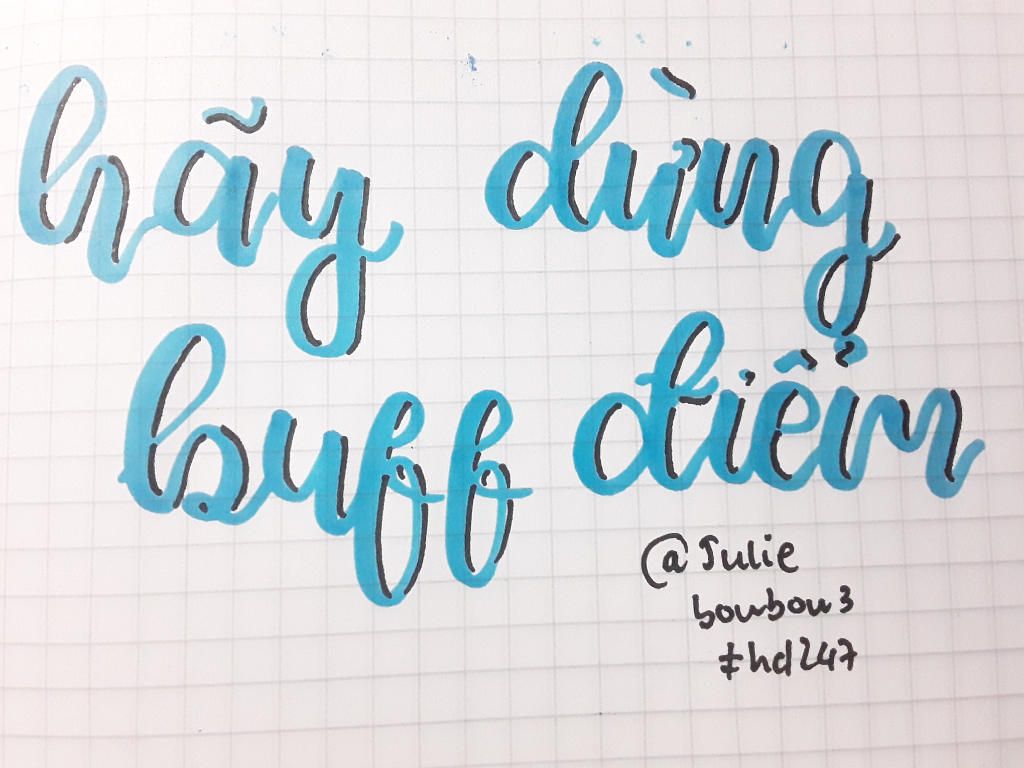 hãy dừng
buff điểm
@Julie
boubou3
#hd247